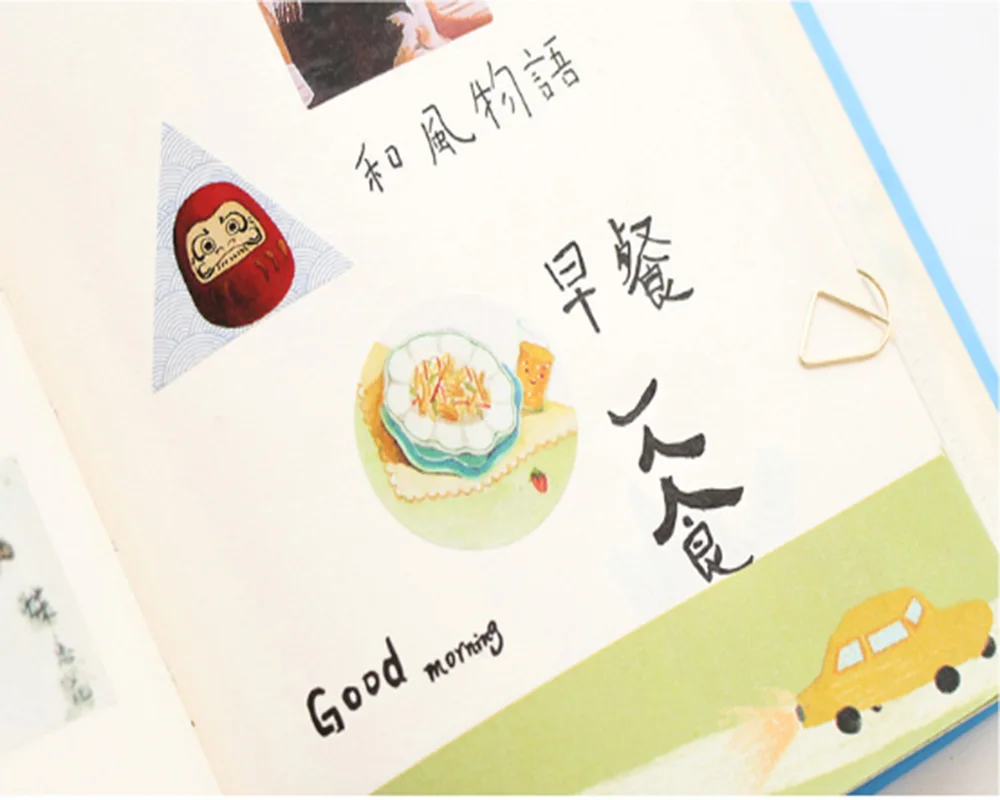 和風物語
早餐
一人食
Good morning